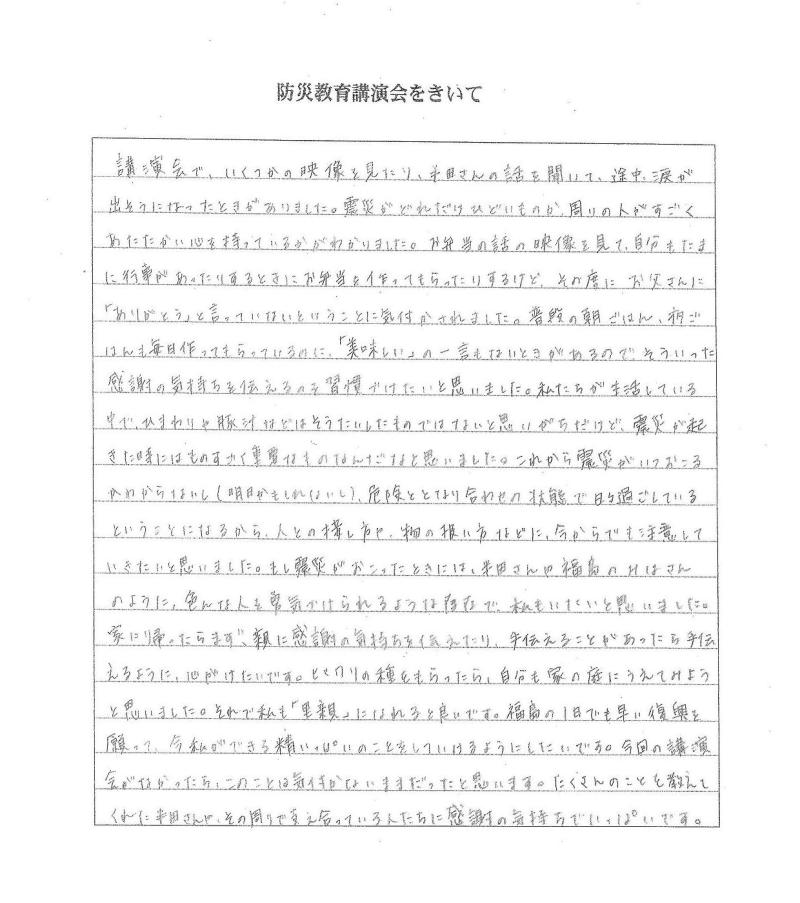 防災教育講演会をきいて
講演会で、いくつかの映像を見たり、半田さんの話を聞いて、途中、涙が
出そうになったときがありました。震災がどれだけひどいものか、周りの人がすごく
あたたかい心を持っているかがわかりました。お弁当の話の映像を見て、自分もたま
に行事があったりするときにお弁当を作ってもらったりするけど、その度に お父さんに
「ありがとう」と言っていないということに気付かされました。普段の朝ごはん、夕ご
はんも毎日作ってもらっているのに、「美味しい」の一言もないときがあるので、そういった
感謝の気持ちを伝えるのを習慣づけたいと思いました。私たちが生活している
中で、ひまわりや豚汁などはそうたいしたものではないと思いがちだけど、震災が起
きた時にはものすごく重要なものなんだなと思いました。これから震災がいつおこる
かわからないし(明日かもしれないし)、危険ととなり合わせの状態で日々過ごしている
ということになるから、人との接し方や、物の扱い方などに、今からでも注意して
いきたいと思いました。もし震災がおこったときには、半田さんや福島のみはさん
のように、色んな人を勇気づけられるような存在で、私もいたいと思いました。
家に帰ったらまず、親に感謝の気持ちを伝えたり、手伝えることがあったら手伝
えるように、心がけたいです。ヒマワリの種をもらったら、自分も家の庭にうえてみよう
と思いました。それで私も「里親」になれると良いです。福島の1日でも早い復興を
願って、今私ができる精いっぱいのことをしていけるようにしたいです。今回の講演
会がなかったら、このことは気付かないままだったと思います。たくさんのことを教えて
くれた半田さんや、その周りで支え合っている人たちに感謝の気持ちでいっぱいです。